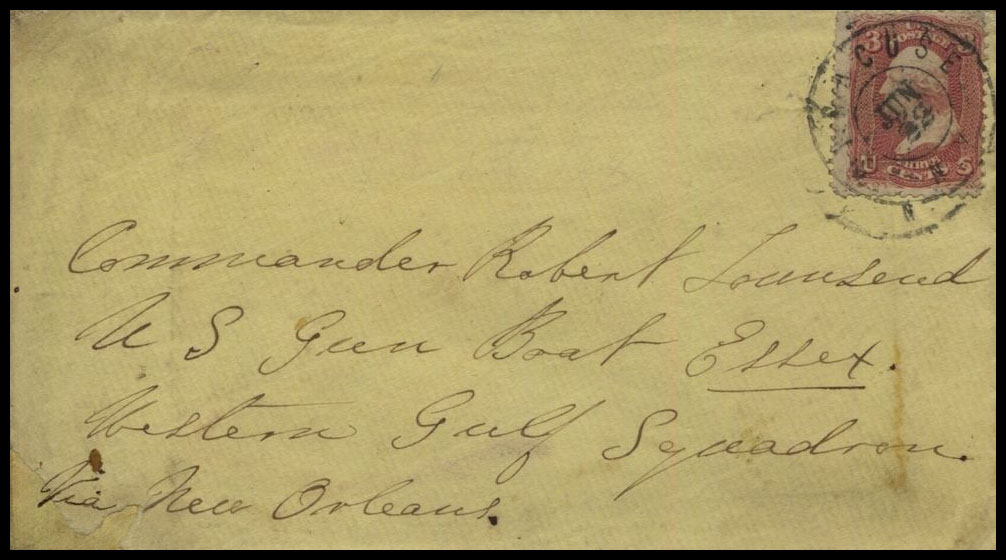 3
POSTAGE
SYRACUSE N.Y.
JUN
22
THREE
CENTS
Commander Robert Townsend
U S Gun Boat Essex.
Western Gulf Squadron.
Via New Orleans.